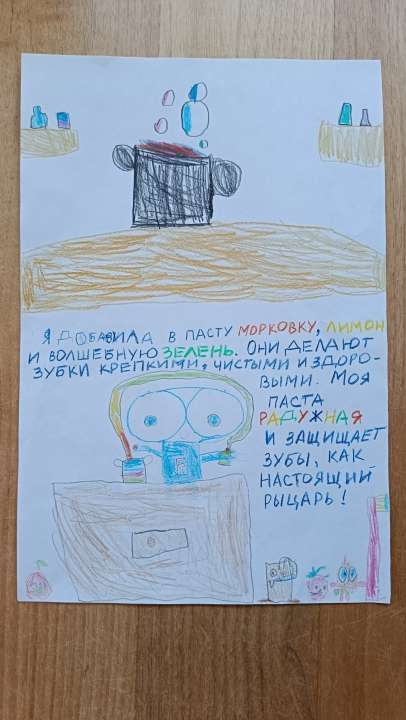 Я ДОБАВИЛА В ПАСТУ МОРКОВКУ, ЛИМОН
И ВОЛШЕБНУЮ ЗЕЛЕНЬ. ОНИ ДЕЛАЮТ
ЗУБКИ КРЕПКИМИ, ЧИСТЫМИ И ЗДОРО-
ВЫМИ. МОЯ
ПАСТА
РАДУЖНАЯ
И ЗАЩИЩАЕТ
ЗУБЫ, КАК
НАСТОЯЩИЙ
РЫЦАРЬ!